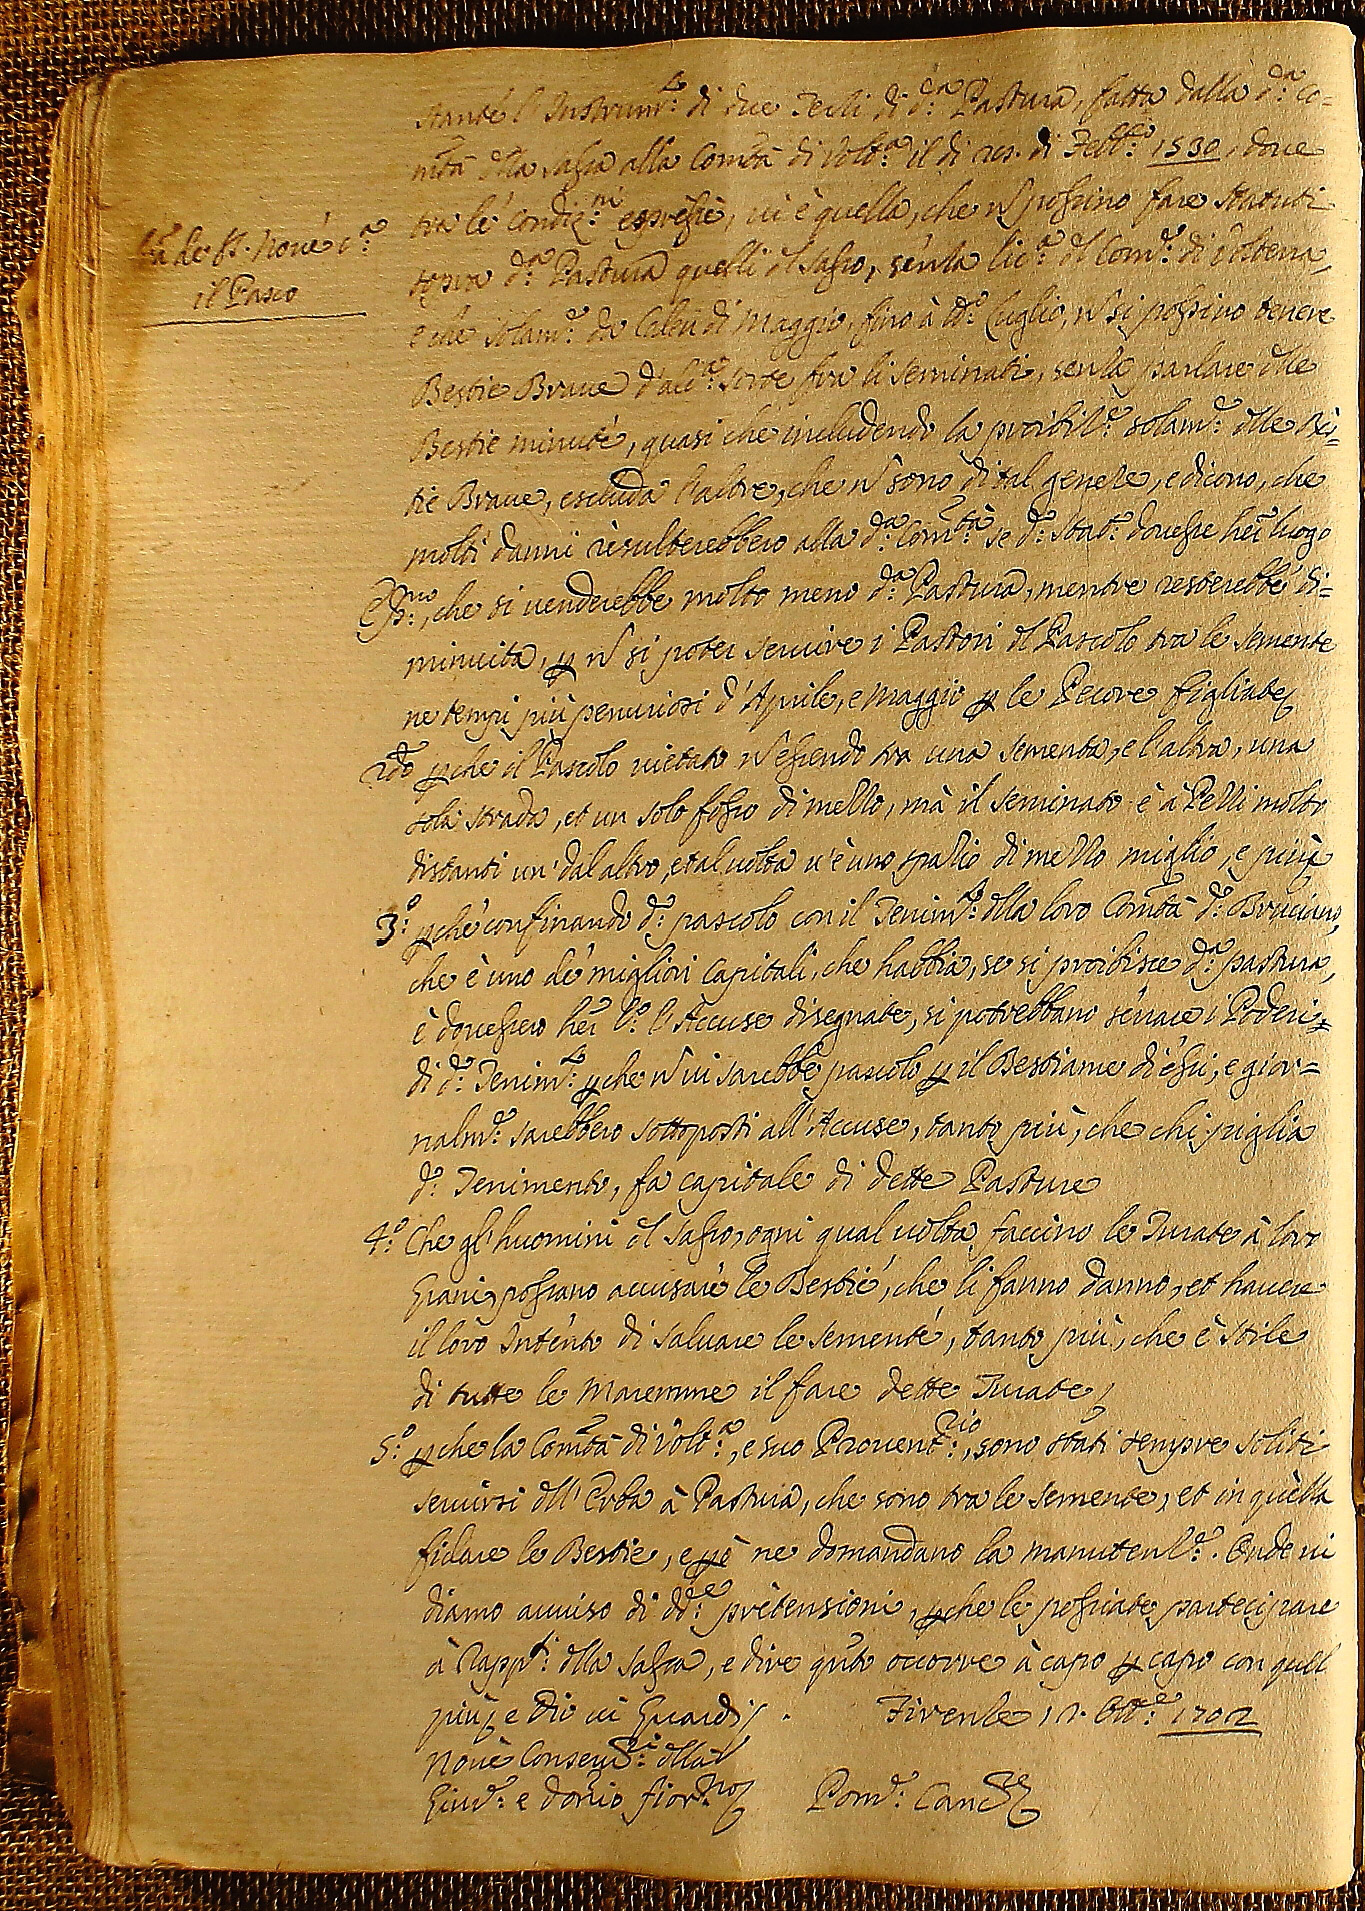 stante l'Instrum.to di due Terzi di d.a Pastura, fatta dalla d.a Co=
m̃tà dlla Sassa alla Com̃tà di Volt.a il di di Febb.o 1530, doue
tra le Condiz.ni espresse, ui è quella, che ñ possino fare Statuti
sopra d.a Pastura quelli dl Sasso, senza lic.a dl Com.e di Volterra,
Ira de SS. Noue c.a
il Pasco
e che solam.e da Calen di Maggio, fino à tt.o Luglio, ñ si possino tenere
Bestie Braue d'alc.a sorte fra li seminati, senza parlare dlle
Bestie minute, quasi che includendo la proibiz.e solam.e dlle Bes=
tie Braue, escluda l'altre, che ñ sono di tal genere, e dicono, che
molti danni resulterebbero alla d.a Com.tà se d.o Stat.o douesse her luogo
E P.mo, che si uenderebbe molto meno d.a Pastura, mentre resterebbe di=
minuita, p ñ si poter seruire i Pastori dl Pascolo tra le semente
ne tempi più penuriosi d'Aprile, e Maggio p le Pecore figliate
2do pche il Pascolo uietato ñ essendo tra una sementa, e l'altra, una
sola strada, et un solo fosso di mezzo, mà il seminato è à Pezzi molto
distanti un' dal altro, e tal uolta u'è uno spazio di mezzo miglio, e più
3.o pche confinando d.o pascolo con il Tenim.to dlla loro Com̃tà d.o Bruciano,
che è uno de' migliori Capitali, che habbia, se si proibisce d.a pastura,
è douessero her l.o l'Accuse disegnate, si potrebbano serrare i Poderi
di d.o Tenim.to pche ñ ui sarebbe pascolo p il Bestiame di essi, e gior=
nalm.e sarebbero sottoposti all'Accuse, tanto più, che chi piglia
d.o Tenimento, fa capitale di dette Pasture
4.o Che gl'huomini dl Sasso, ogni qual uolta faccino le Turate à loro
Grani, possano accusare le Bestie, che li fanno danno, et hauere
il loro Intento di saluare le semente, tanto più, che è stile
di tutte le Maremme il fare dette Turate
5.o pche la Com̃tà di Volt.a, e suo Prouent.rio, sono stati sempre soliti
seruirsi dll'Erba à Pastura, che sono tra le semente, et in quella
fidare le Bestie, e pò ne domandano la manutenz.e. Onde ui
diamo auuiso di dd.e pretensioni, pche le possiate participare
à Rapp.ti dlla Sassa, e dire q̃to occorre à capo p capo con quel
più, e Dio ui Guardi. Firenze 12 Ott.e 1702
Noue Conseru.ri dlla
Giur.e e dom̃io fior.no Pom.o Canc.e